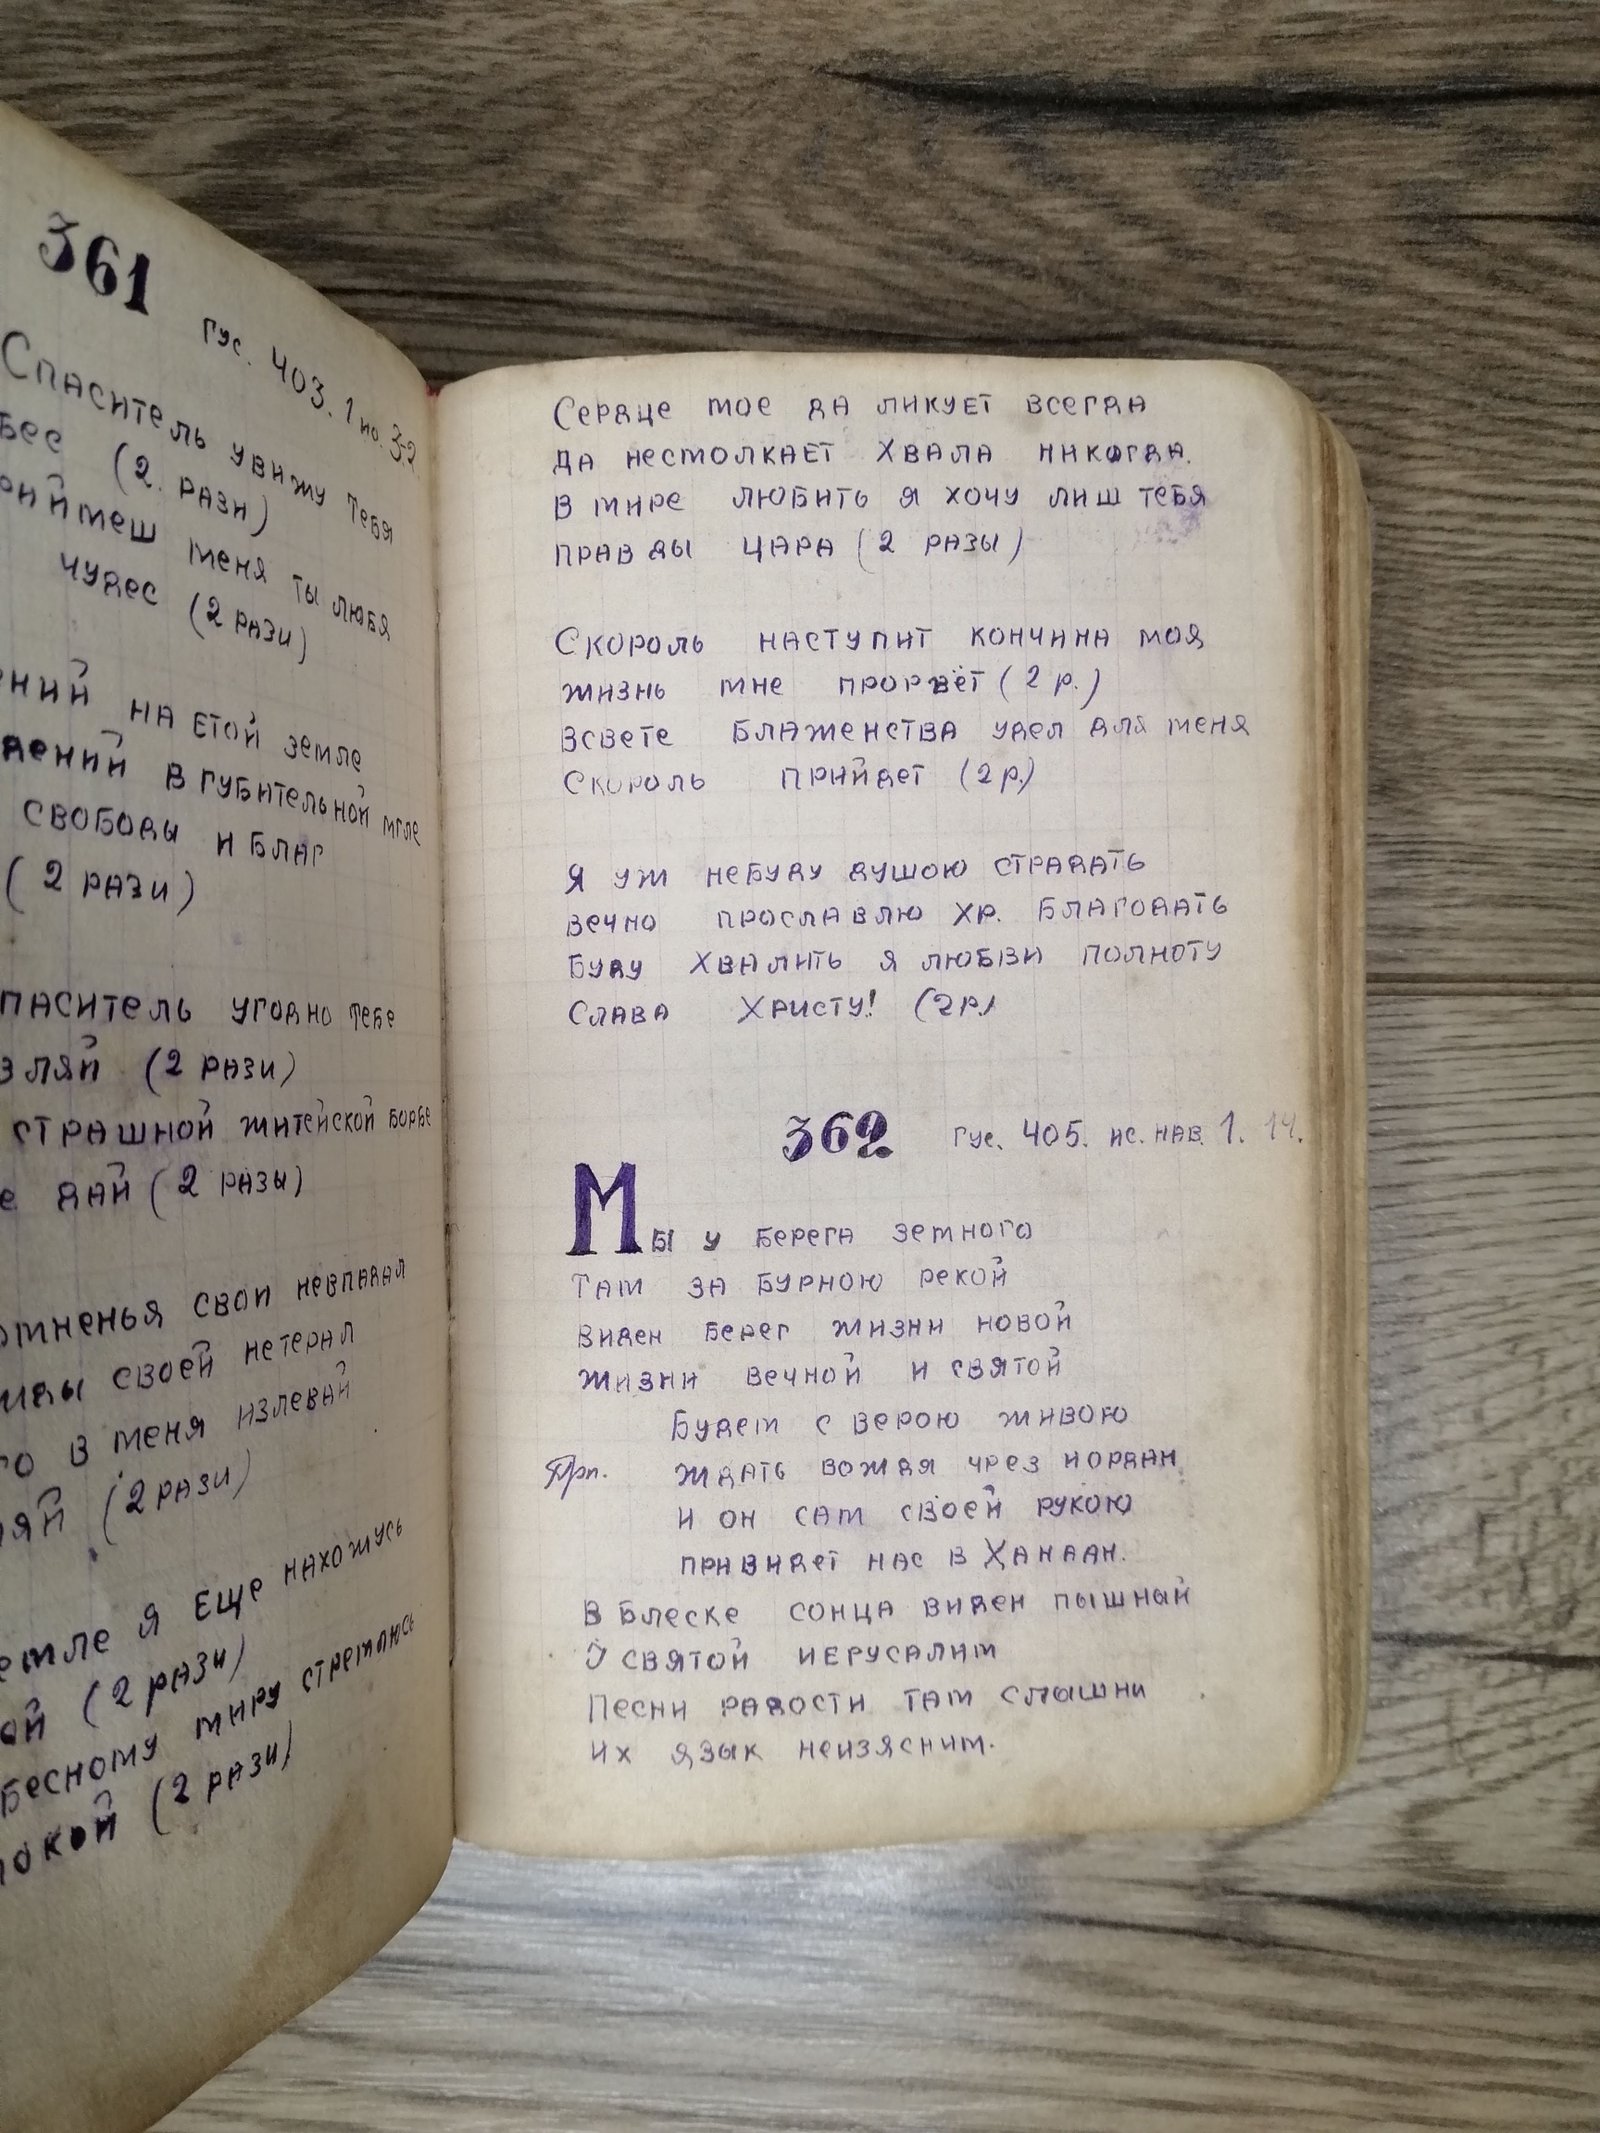 361
Гус. 403. 1 ио. 3-2
Спаситель увижу тебя
(2. рази)
меня ты любя
чудес (2 рази)
на етой земле
в губительной мгле
свободы и благ
(2 рази)
угодно тебе
(2 рази)
страшной житейской борьбе
дай (2 разы)
свои невпадал
своей нетерял
в меня изливай
(2 рази)
я еще нахожусь
(2 рази)
миру стремлюсь
(2 рази)
Сердце мое да ликует всегда
да несмолкает хвала никогда.
в мире любить я хочу лиш тебя
правды цара (2 разы)
Скороль наступит кончина моя
жизнь мне прорвёт (2 р.)
всвете блаженства удел для меня
Скороль прийдет (2 р.)
я уж небуду душою страдать
вечно прославлю хр. благодать
Буду хвалить я любви полноту
Слава Христу! (2 р.)
362 Гус. 405. ис. нав. 1. 14.
Мы у берега земного
Там за бурною рекой
виден берег жизни новой
жизни вечной и святой
Будем с верою живою
Прп. ждать вождя чрез иордан
и он сам своей рукою
привидет нас в Ханаан.
в блеске сонца виден пышный
И святой иерусалим
Песни радости там слышни
их язык неизясним.